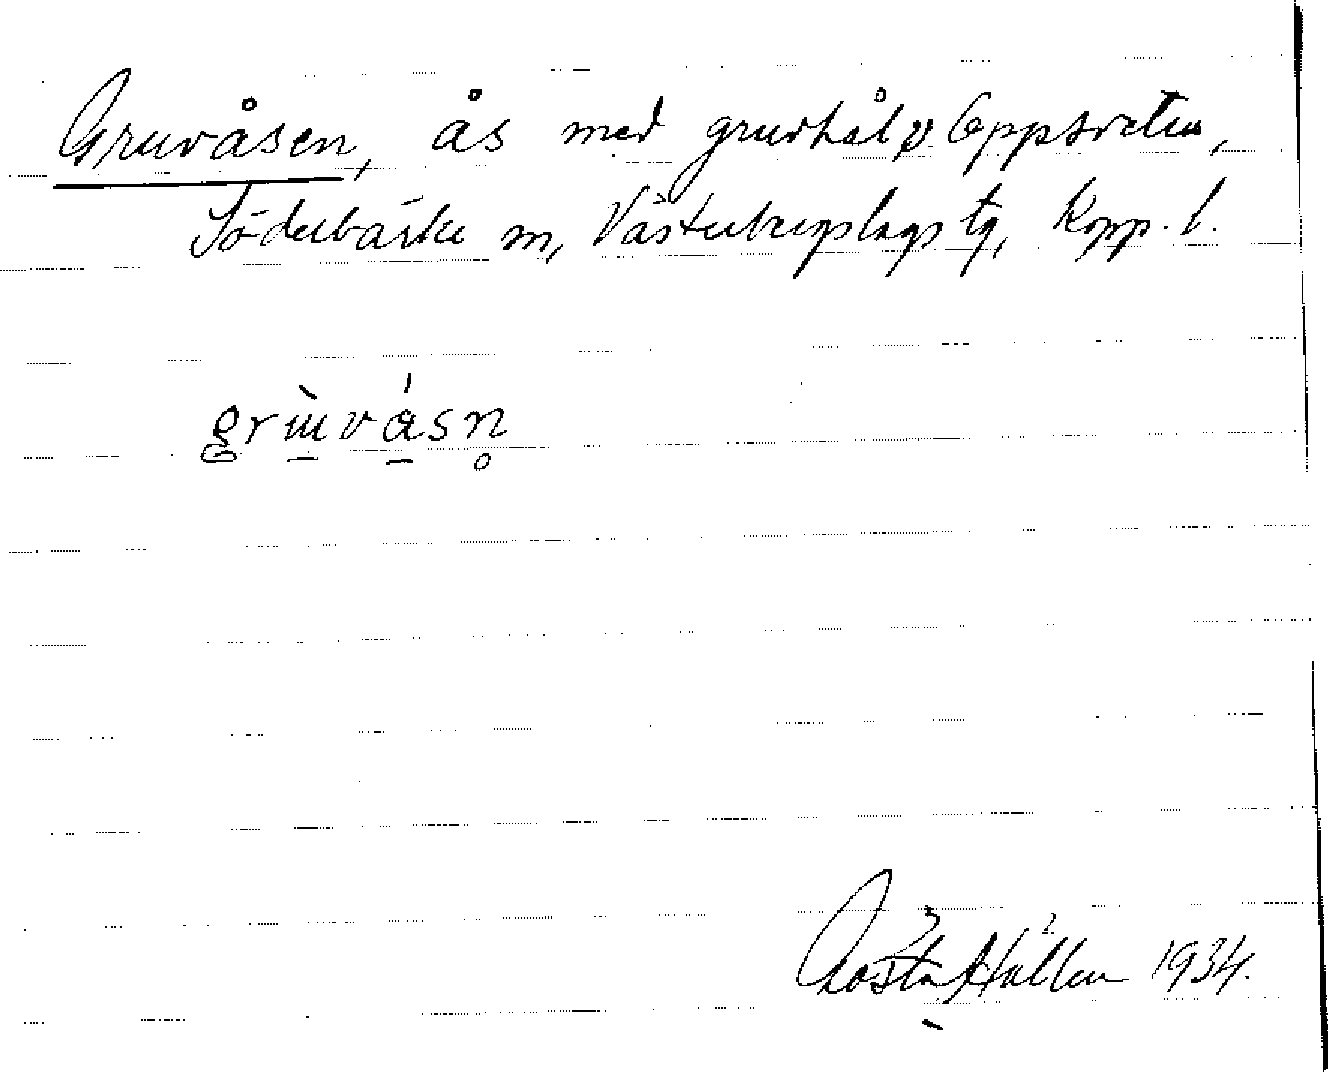 Gruvåsen, ås med gruvhål v. Oppsveten,
Söderbärke sn, Västerbergslags tg, Kopp. l.
grùvåsn̥
Gösta Hållen 1934.